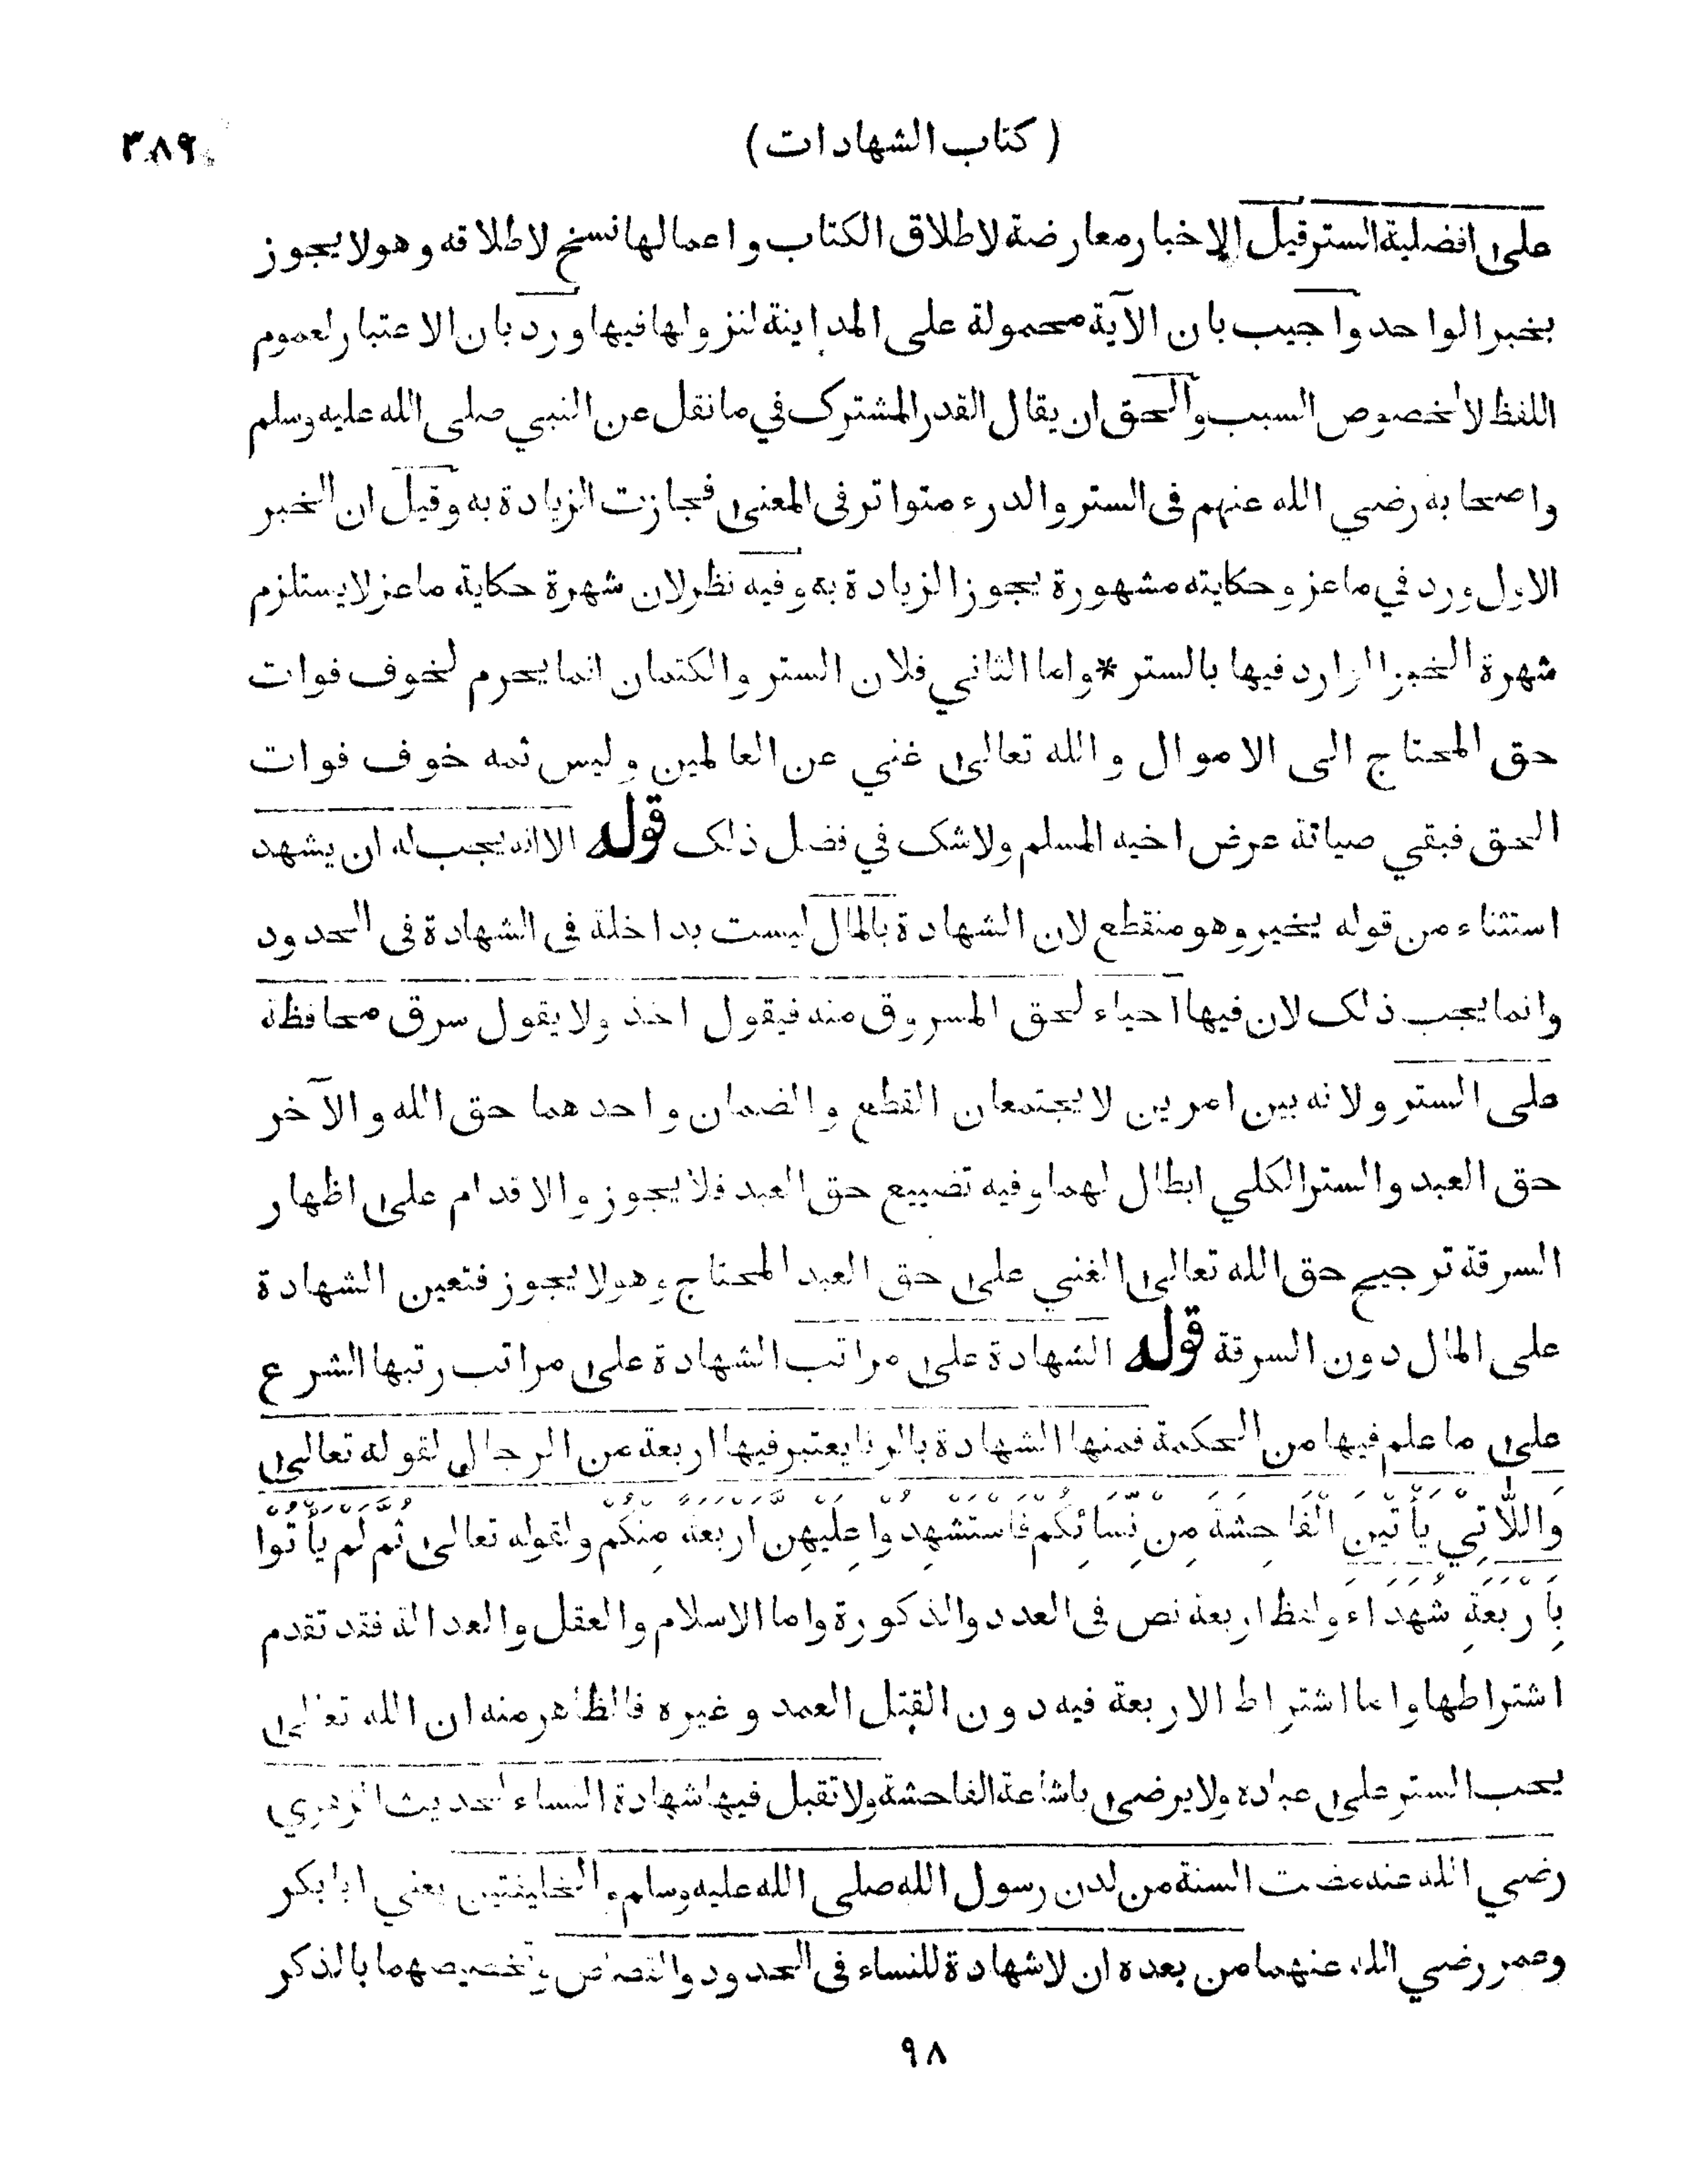 ( كتاب الشهادات )
٣٨٩
على افضلية الستر قيل الاخبار معارضة لاطلاق الكتاب و اعمالها نسخ لاطلاقه و هو لا يجوز
بخبر الواحد واجيب بان الآية محمولة على المداينة لنزولها فيها ورد بان الاعتبار لعموم
اللفظ لا لخصوص السبب والحق ان يقال القدر المشترك في ما نقل عن النبي صلى الله عليه وسلم
واصحابه رضي الله عنهم في الستر والدرء متواتر في المعنى فجازت الزيادة به وقيل ان الخبر
الاول ورد في ماعز وحكايته مشهورة يجوز الزيادة به وفيه نظر لان شهرة حكاية ماعز لا يستلزم
شهرة الخبر الوارد فيها بالستر * واما الثاني فلان الستر والكتمان انما يحرم لخوف فوات
حق المحتاج الى الاموال والله تعالى غني عن العالمين وليس ثمه خوف فوات
الحق فبقي صيانة عرض اخيه المسلم ولا شك في فضل ذلك قوله الا انه يجب له ان يشهد
استثناء من قوله يخير وهو منقطع لان الشهادة بالمال ليست بداخلة في الشهادة في الحدود
وانما يجب ذلك لان فيها احياء لحق المسروق منه فيقول اخذ ولا يقول سرق محافظة
على الستر ولانه بين امرين لا يجتمعان القطع والضمان واحدهما حق الله والآخر
حق العبد والستر الكلي ابطال لهما وفيه تضييع حق العبد فلا يجوز والاقدام على اظهار
السرقة ترجيح حق الله تعالى الغني على حق العبد المحتاج وهو لا يجوز فتعين الشهادة
على المال دون السرقة قوله الشهادة على مراتب الشهادة على مراتب رتبها الشرع
على ما علم فيها من الحكمة فمنها الشهادة بالزنا يعتبر فيها اربعة من الرجال لقوله تعالى
وَاللَّاتِيْ يَأْتَيْنَ الْفَاحِشَةَ مِنْ نِّسَائِكُمْ فَاسْتَشْهِدُوْا عَلَيْهِنَّ اَرْبَعَةً مِنْكُمْ ولقوله تعالى ثُمَّ لَمْ يَأْتُوْا
بِاَرْبَعَةِ شُهَدَاءَ ولفظ اربعة نص في العدد والذكورة واما الاسلام والعقل والعدالة فقد تقدم
اشتراطها واما اشتراط الاربعة فيه دون القتل العمد و غيره فالظاهر منه ان الله تعالى
يحب الستر على عباده ولا يرضى باشاعة الفاحشة ولا تقبل فيها شهادة النساء لحديث الزهري
رضي الله عنه مضت السنة من لدن رسول الله صلى الله عليه وسلم والخليفتين يعني ابا بكر
وعمر رضي الله عنهما من بعده ان لا شهادة للنساء في الحدود والقصاص وتخصيصهما بالذكر
٩٨